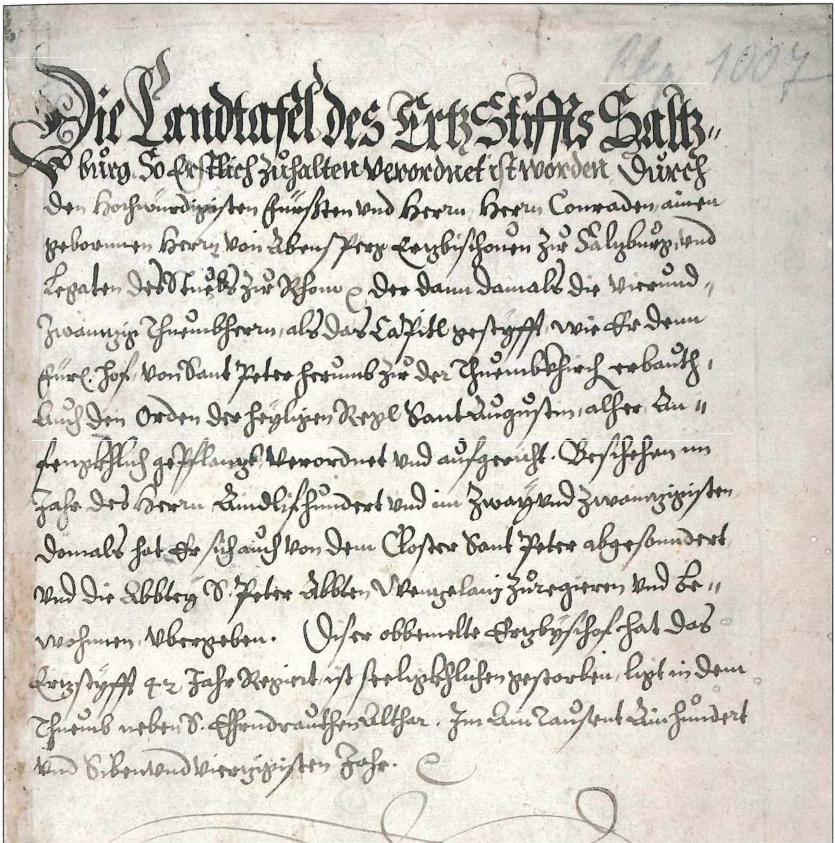 Rep. 1007
Die Landtafel des Ertz Stiffts Saltz„
burg. So Erstlich zůhalten verordnet ist worden, Durch
den Hochwürdigisten Fürssten vnd Herrn, Herrn Conraden, ainen
gebornnen Herrn von Abensperg Ertzbischouen zů Saltzburg, vnd
Legaten des Stuels zů Rhom der dann damals die vierund„
zwainzig Thuembherrn, als das Capitl gestyfft, wie Er denn
Fürl. Hof, von Sant Peter herumb zů der Thuembkhirch erbauth,
Auch den Orden der heyligen Regl Sant Augustin, alher An„
fengkhlich gepflanzt, verordnet vnd aufgericht. Beschehen im
Jahr des Herrn Aindlifhundert vnd im Zway vnd zwainzigisten
domals hat Er sich auch von dem Closter Sant Peter abgesonndert,
vnd die Abbtey S. Peter Abbten Wenzelain zůregieren vnd be„
wohnnen, vbergeben. Diser obbemelte Ertzbyschof hat das
Ertzstyfft 42 Jahr Regiert, ist seeligkhlichen gestorben, ligt in dem
Thuemb neben S. Ehrndrauthen Althar. Im Ain Taussent Ainhundert
vnd Siben vnd vierzigisten Jahr.